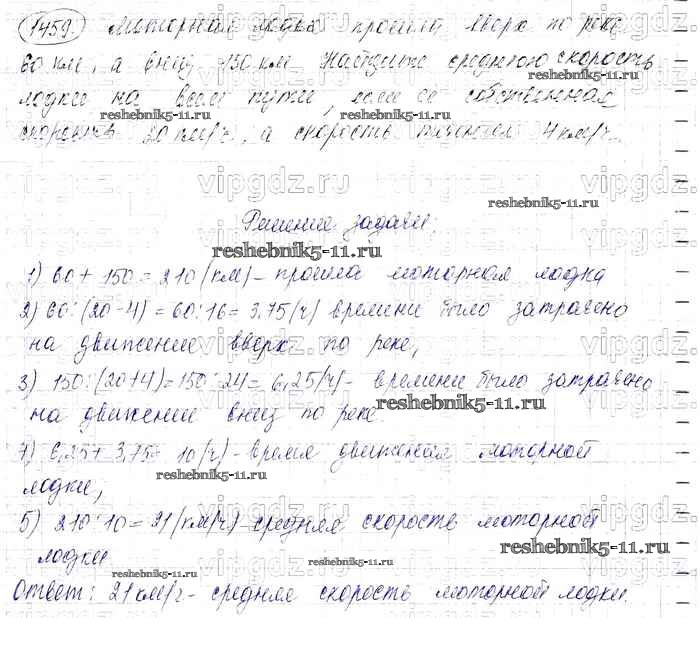 1459. Моторная лодка прошла вверх по реке
60 км, а вниз 150 км. Найдите среднюю скорость
лодки на всем пути, если её собственная
скорость 20 км/ч, а скорость течения 4 км/ч.
Решение задачи:
1) 60 + 150 = 210 (км) – прошла моторная лодка
2) 60 : (20-4) = 60 : 16 = 3,75 (ч) времени было затрачено
на движение вверх по реке,
3) 150 : (20+4) = 150 : 24 = 6,25 (ч) - времени было затрачено
на движении вниз по реке.
4) 6,25 + 3,75 = 10 (ч) - время движения моторной
лодки,
5) 210 : 10 = 21 (км/ч) - средняя скорость моторной
лодки
Ответ: 21 км/ч - средняя скорость моторной лодки.
vipgdz.ru
reshebnik5-11.ru